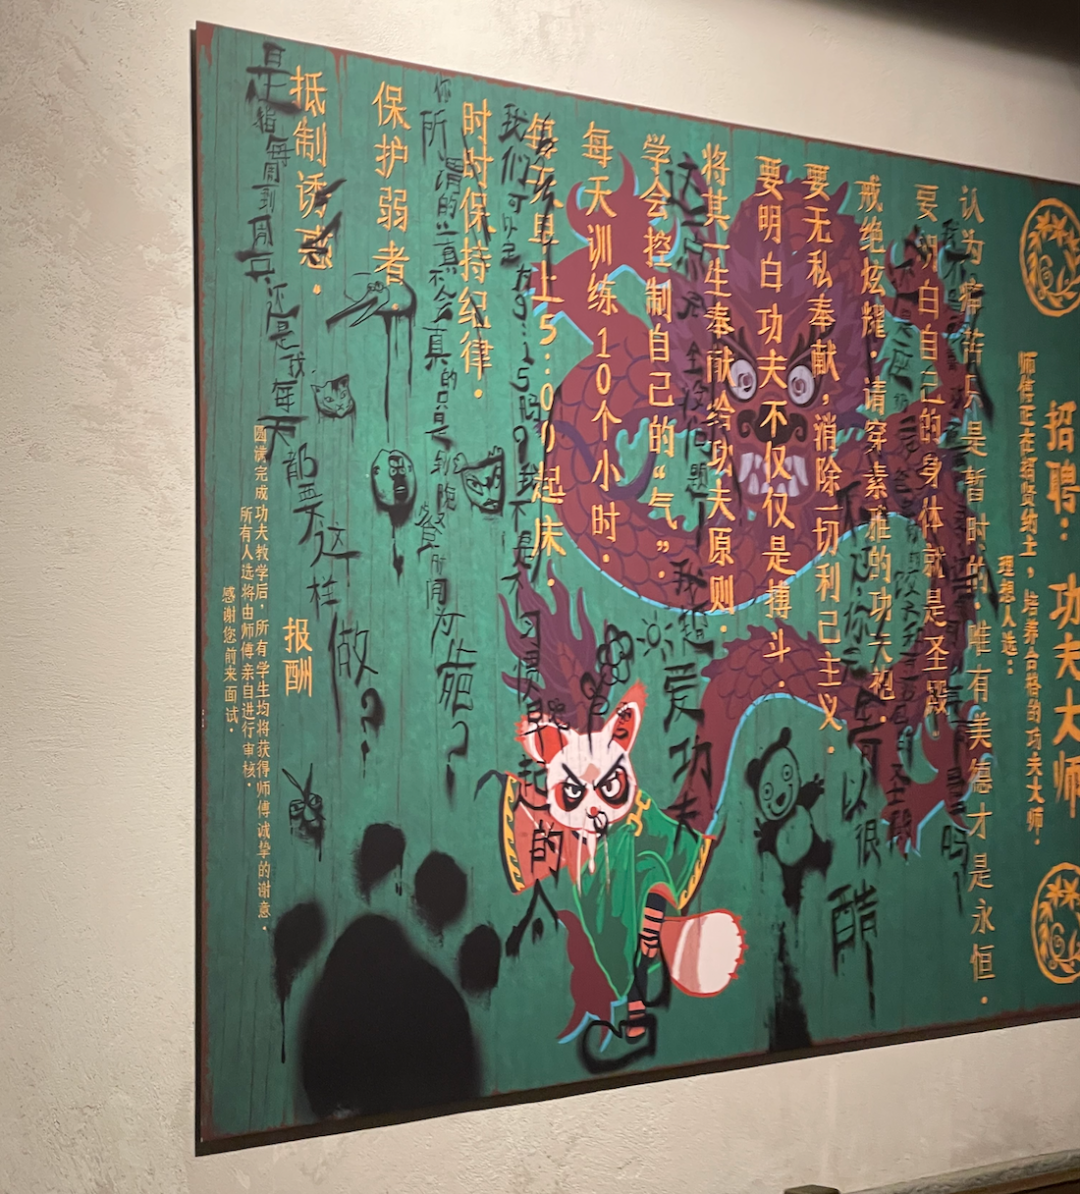 招聘：功夫大师
师傅正在招贤纳士，培养合格的功夫大师．
理想人选：
认为痛苦只是暂时的．唯有美德才是永恒．
要明白自己的身体就是圣殿．
戒绝炫耀．请穿素雅的功夫袍．
要无私奉献，消除一切利己主义．
要明白功夫不仅仅是搏斗．
将其一生奉献给功夫原则．
学会控制自己的“气”．
每天训练10个小时．
每天早上5:00起床．
时时保持纪律．
保护弱者．
抵制诱惑．
报酬
圆满完成功夫教学后，所有学生均将获得师傅诚挚的谢意．
所有人选将由师傅亲自进行审核．
感谢您前来面试．
可以很酷
我超爱功夫
我不是习惯早起的人
你所谓的
是指每周到周五还是我每天都要这样做？